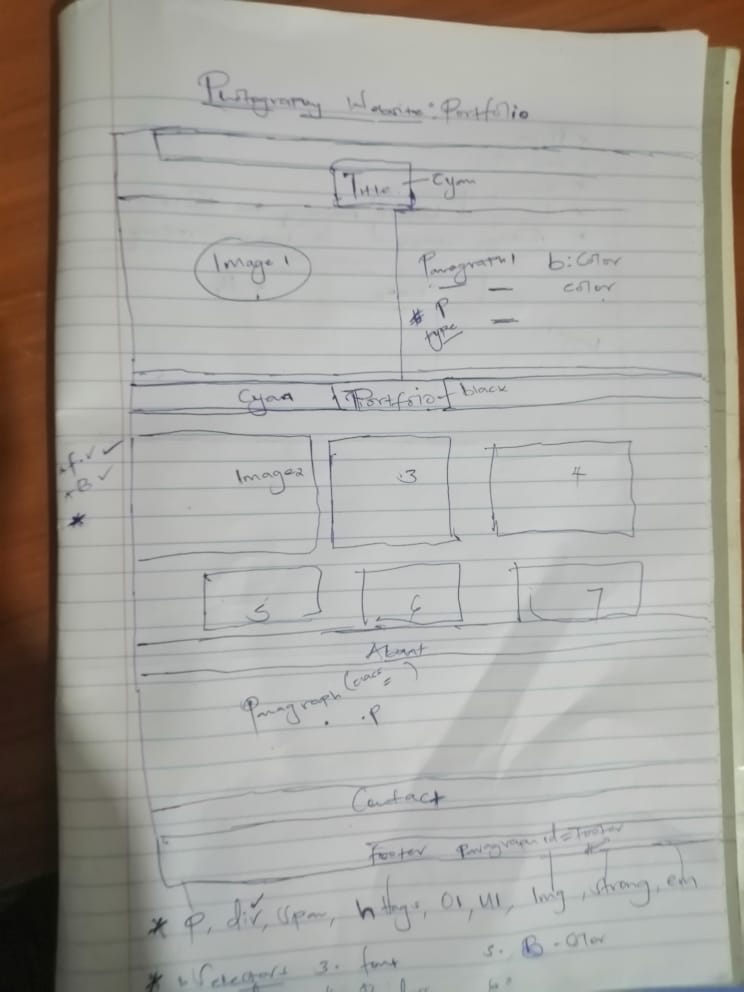 Photography Website: Portfolio
Title Cyan
Image 1
Paragraph 1 b: color
color
* P
type
Cyan Portfolio black
* f. ✓ ✓
* B ✓
*
Image 2 3 4
5 6 7
About
Paragraph (class = )
. P
Contact
footer Paragraph id = footer
* P, div, span, h tags, Ol, Ul, Img, strong, em
* Selectors 3. font 5. B - Color